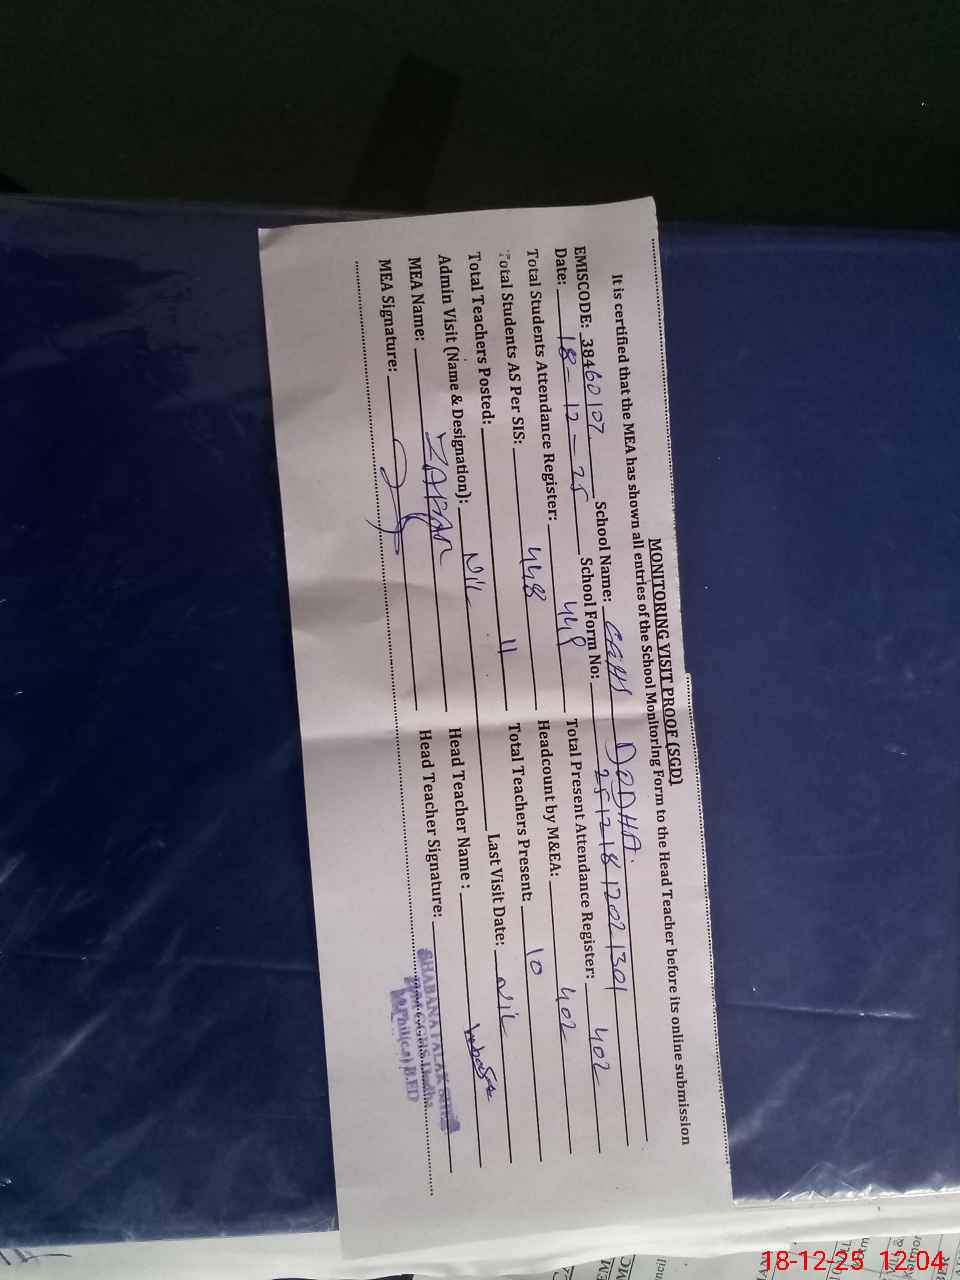 MONITORING VISIT PROOF (SGD)
It is certified that the MEA has shown all entries of the School Monitoring Form to the Head Teacher before its online submission
EMISCODE: 38460107 School Name: GGHS DODHA.
Date: 18-12-25 School Form No: 25121812021301
Total Students Attendance Register: 448 Total Present Attendance Register: 402
Total Students AS Per SIS: 448 Headcount by M&EA: 402
Total Teachers Posted: 11 Total Teachers Present: 10
Admin Visit (Name & Designation): NIL Last Visit Date: NIL
MEA Name: ZAFAR Head Teacher Name :
MEA Signature: Head Teacher Signature:
SHABANA
GGHS
B.ED
18-12-25 12:04